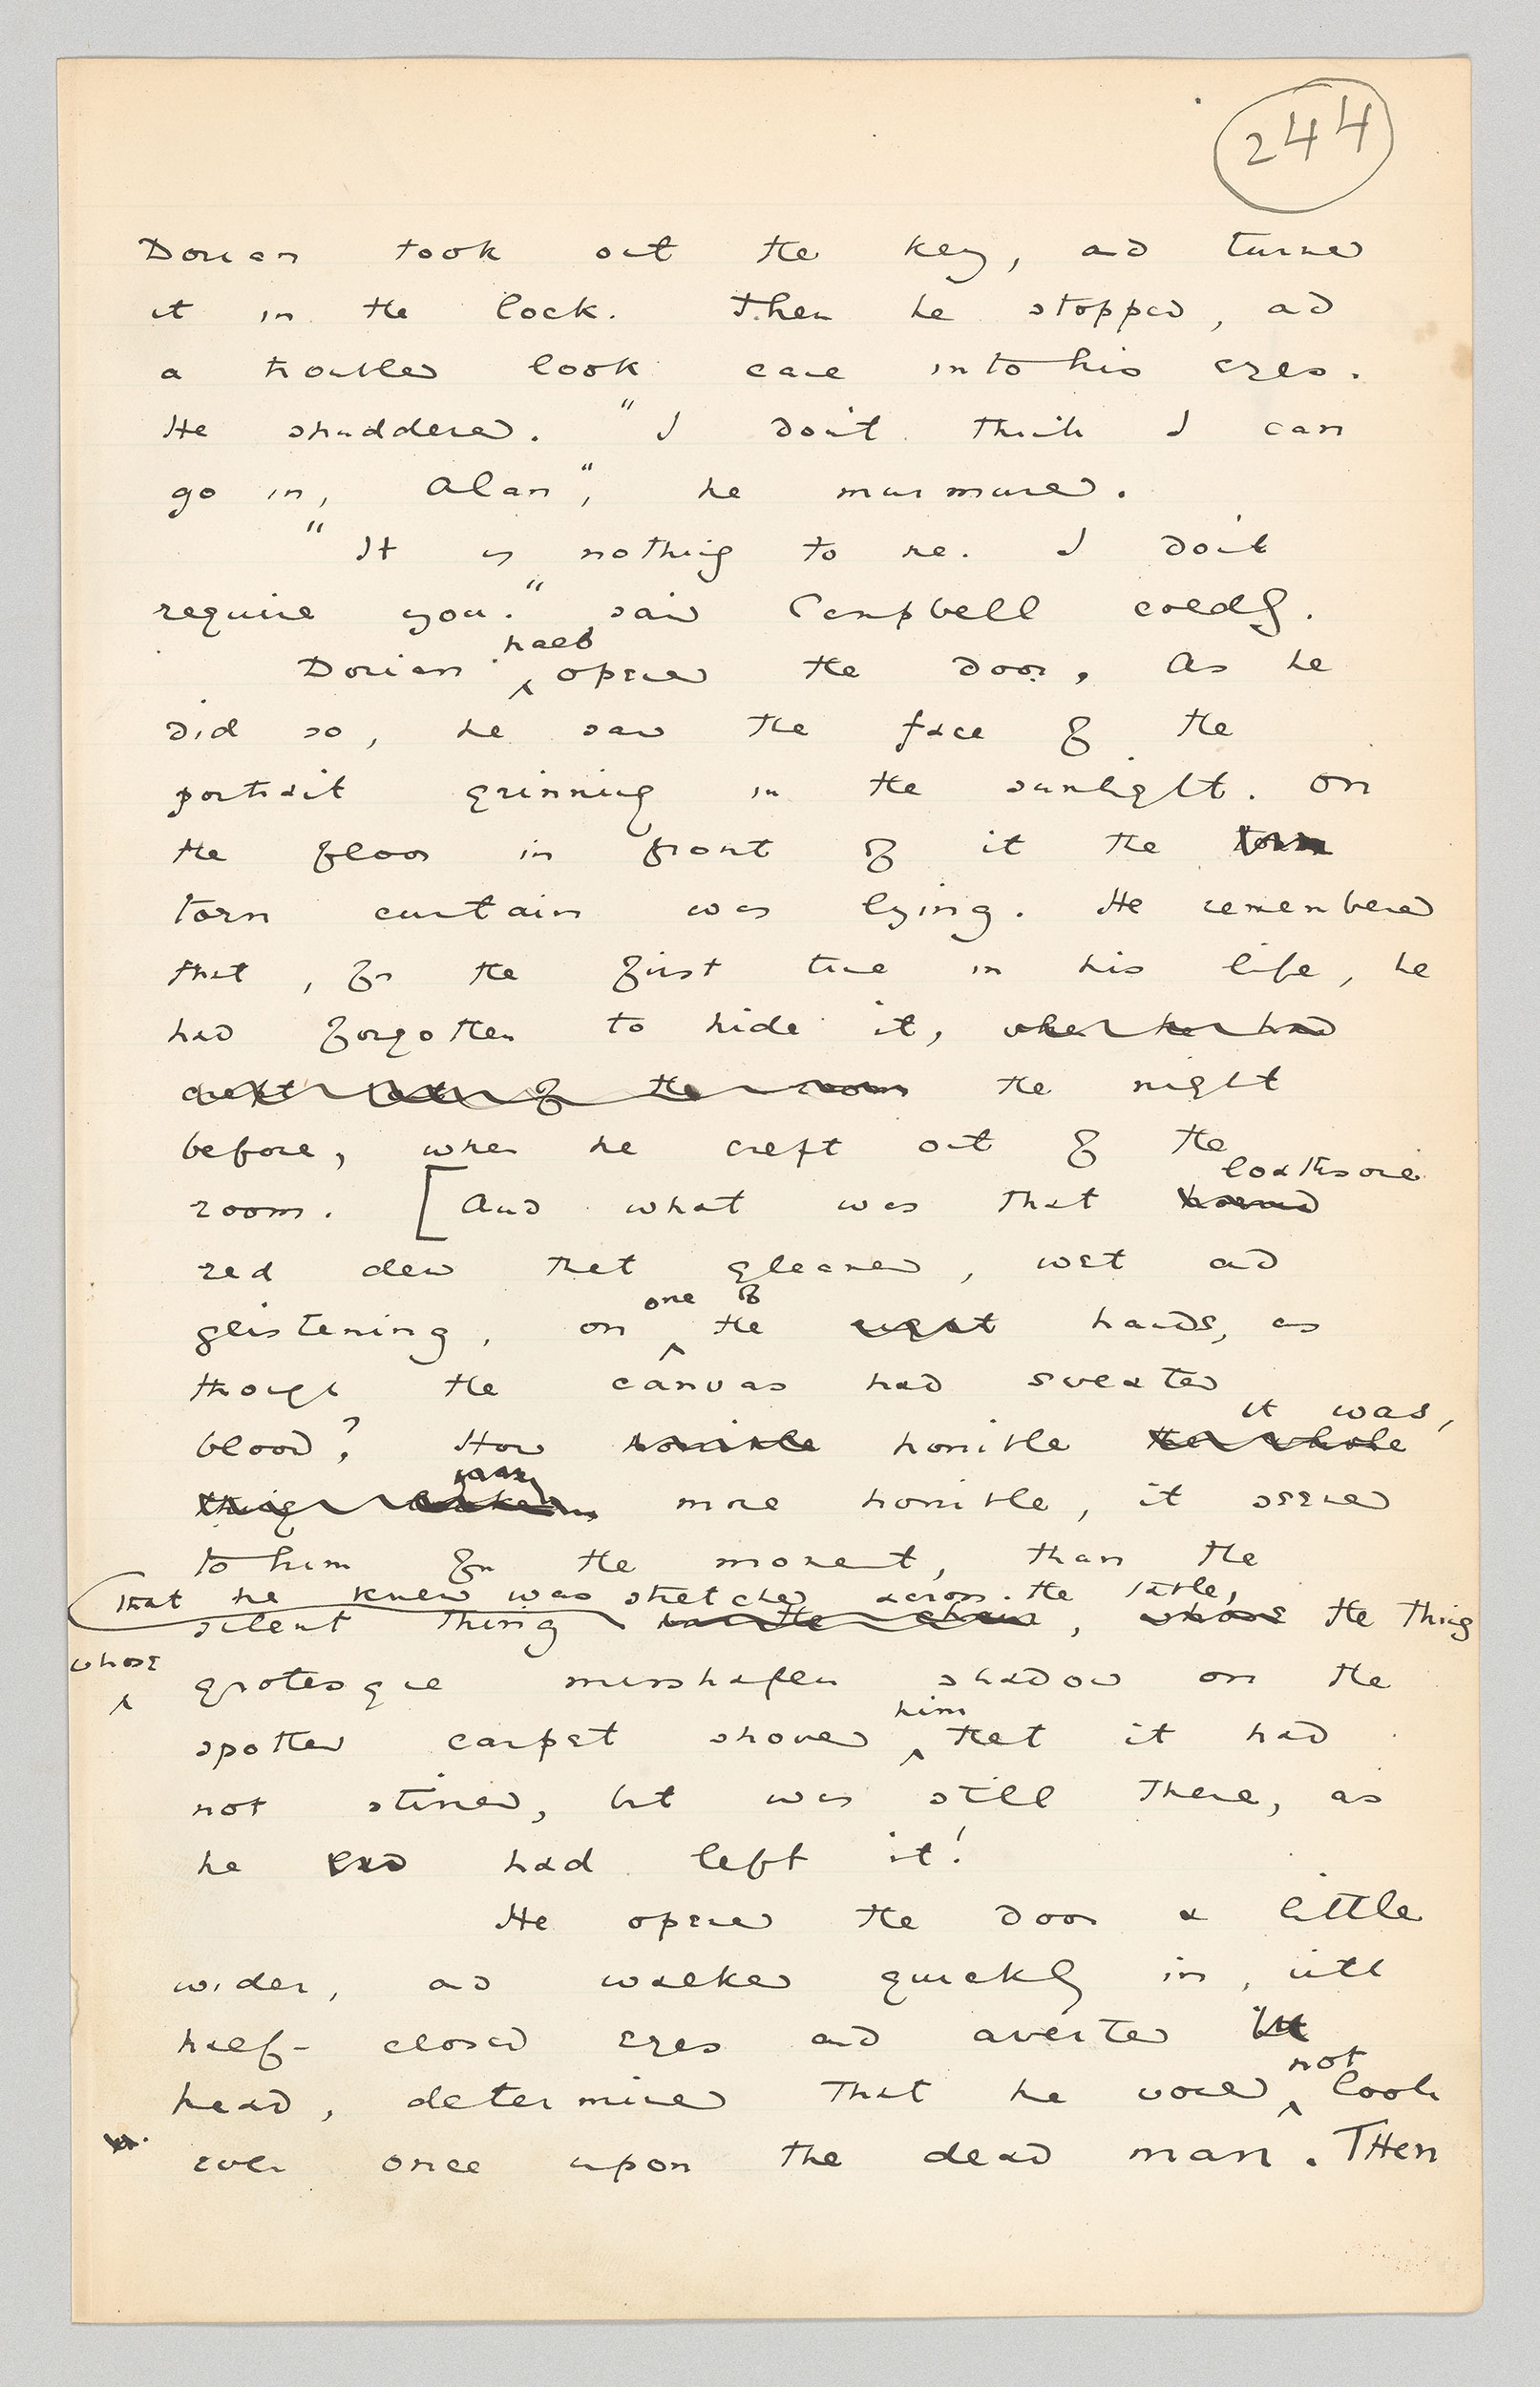 244
Dorian took out the key, and turned
it in the lock. Then he stopped, and
a troubled look came into his eyes.
He shuddered. "I don't think I can
go in, Alan", he murmured.
"It is nothing to me. I don't
require you." said Campbell coldly.
half
Dorian opened the door, As he
did so, he saw the face of the
portrait grinning in the sunlight. On
the floor in front of it the torn
torn curtain was lying. He remembered
that, for the first time in his life, he
had forgotten to hide it, when he had
crept out of the room the night
before, when he crept out of the
loathsome
room. [And what was that horrid
red dew that gleamed, wet and
one of
glistening, on the right hands, as
though the canvas had sweated
it was,
blood? How horrible horrible the whole
thing more horrible, it seemed
to him for the moment, than the
that he knew was stretched across the table,
silent thing in the chair, whose the thing
whose
grotesque misshapen shadow on the
him
spotted carpet showed that it had
not stirred, but was still there, as
he had left it!
He opened the door a little
wider, and walked quickly in, with
half-closed eyes and averted
not
head, determined that he would look
even once upon the dead man. Then